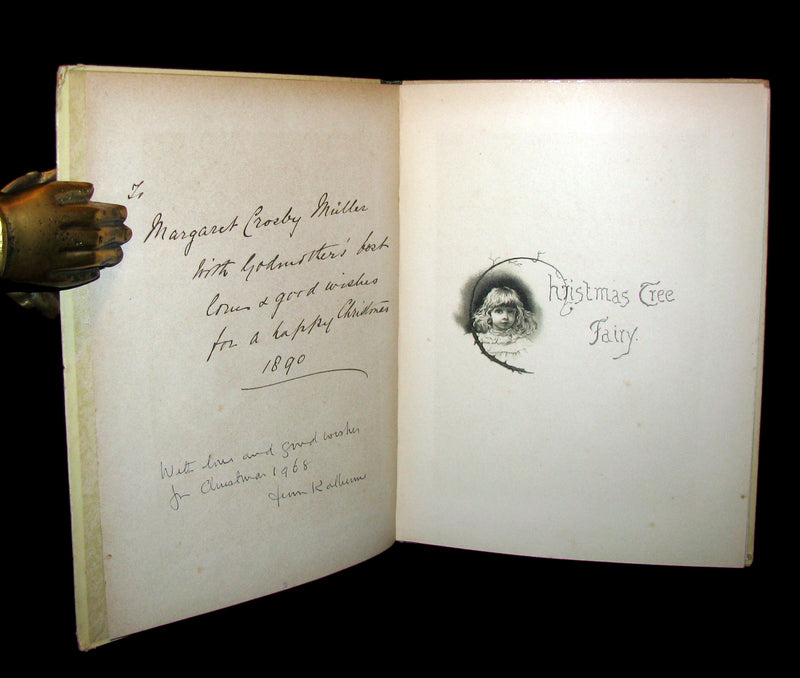 To
Margaret Crosby Müller
With Godmother's best
love & good wishes
for a happy Christmas
1890
With love and good wishes
for Christmas 1968
from Katherine
Christmas Tree
Fairy.